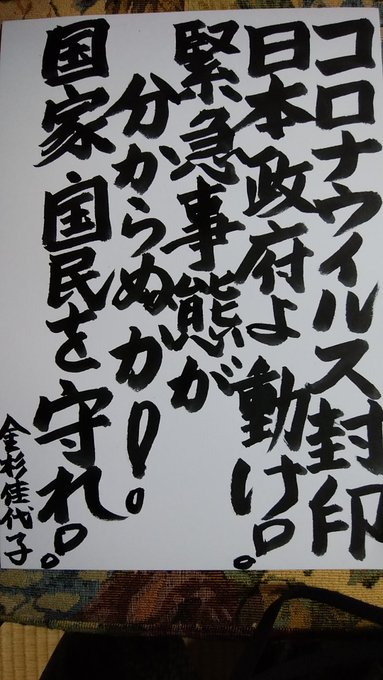 コロナウイルス封印
日本政府よ動け!。
緊急事態が
分からぬか!。
国家国民を守れ!。
金杉佳代子